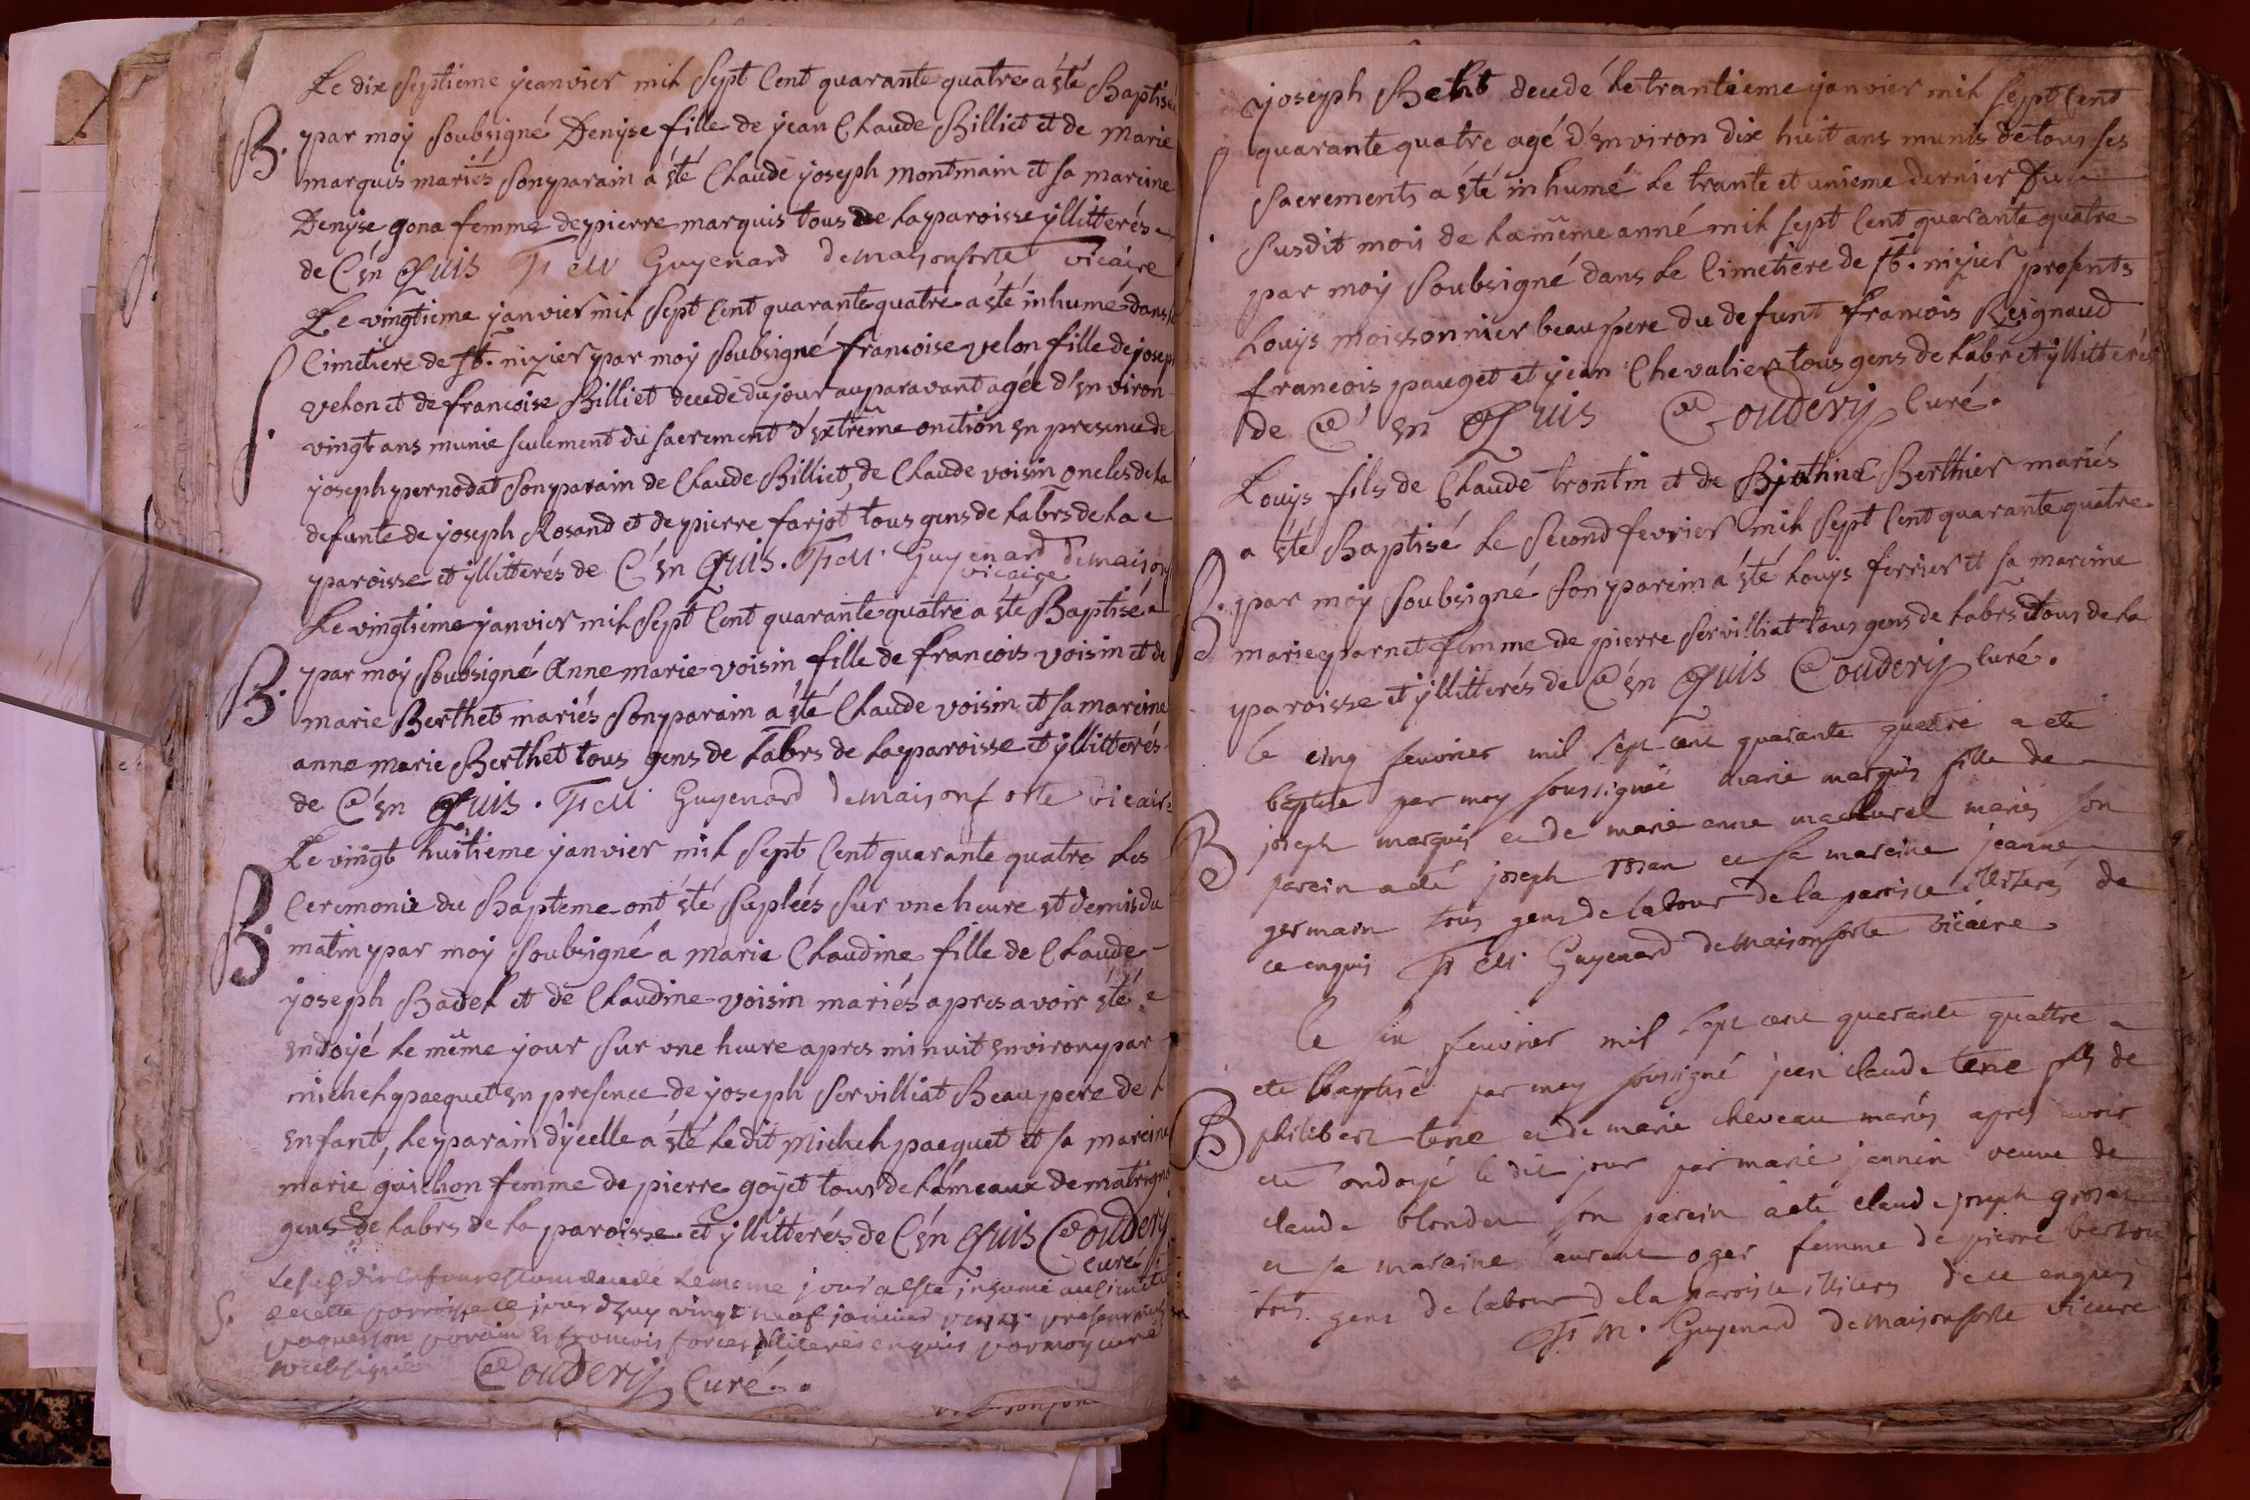 Le dix septieme yeanvier mil sept Cent quarante quatre a été Baptisé
B. par moy soubsigné Denyse fille de yean Claude Billiet et de Marie
marquis mariés son parain a été Claude yoseph montmain et sa mareine
Denyse gona femme de pierre marquis tous de la paroisse yllitterés
de C'én Quis Guyenard demaisonforte vicaire
Le vingtieme yanvier mil sept Cent quarante quatre a été inhumé dans le
Cimetiere de st. nizier par moy soubsigné francoise velon fille de joseph
velon et de francoise Billiet decedé du jour auparavant agée d'environ
vingt ans munie seulement du sacrement d'extrême onction en presence de
S. joseph pernodat son parain de Claude Billiet, de Claude voisin oncles de la
defunte de joseph Rosand et de pierre farjot tous gens de labrs de la
paroisse et yllitterés de C'én Quis. Guyenard demaison
vicaire
Le vingtieme yanvier mil sept Cent quarante quatre a été Baptisé
B. par moy soubsigné Anne marie voisin fille de francois voisin et de
marie Berthet mariés son parain a été Claude voisin et sa mareine
anne marie Berthet tous gens de labrs de la paroisse et yllitterés
de C'én Quis. Guyenard demaisonforte vicaire
Le vingt huitieme yanvier mil sept Cent quarante quatre les
B. Ceremonie du Bapteme ont été suplées sur une heure et demis du
matin par moy soubsigné a marie Claudine fille de Claude
yoseph Badel et de Claudine voisin mariés apres avoir été
endoyé le même your sur une heure apres minuit environ par
michel paequet en presence de yoseph servilliat Beaupere de l
enfant, le parain d'ycelle a été ledit michel paequet et sa mareine
marie guichon femme de pierre goyet tous de hameaux de matrigna
gens de labrs de la paroisse et yllitterés de C'én Quis Couderij
curé
decedé le meme jour a esté inhumé au
S. de cette parroisse ce jourdhuy vingt neuf janvier
son parain et francois illiterés enquis par moy curé
soubsigné Couderij Curé.
yoseph Beht decedé le trantieme yanvier mil sept Cent
quarante quatre agé d'environ dix huit ans munis de tous ses
sacrements a été inhumé le trante et unieme dernier Du
susdit mois de la même anné mil sept Cent quarante quatre
par moy soubsigné dans le Cimetiere de st. nizier presents
Louys moissonnier beaupere du defunt francois Reignaud
francois pauget et yean Chevalier tous gens de labr et yllitterés
de C'én Quis Couderij Curé.
Louys fils de Claude trontin et de Berthier mariés
a été Baptisé le second fevrier mil sept Cent quarante quatre
B. par moy soubsigné son parein a été Louys ferrier et sa mareine
marie parnet femme de pierre servilliat tous gens de labrs et tous de la
paroisse et yllitterés de C'én Quis Couderij Curé.
le cinq feuvrier mil sept cent quarante quattre a ete
baptise par moy soussigné marie marquis fille de
B joseph marquis et de marie anne mariés son
parein a eté joseph et sa mareine jeanne
germain tous gens de labour de la paroisse illiterés de
ce enquis Guyenard demaisonforte vicaire
le feuvrier mil sept cent quarante quattre a
ete baptisé par moy soussigné jean claude tene fils de
B philibert tene et de marie cheveau mariés apres avoir
ete ondoyé le dit jour par marie jannin veuve de
claude blondet son parein a eté claude joseph
et sa mareine laurent oger femme de pierre
tous gens de labour de la paroisse illiters de ce enquis
Guyenard demaisonforte vicaire